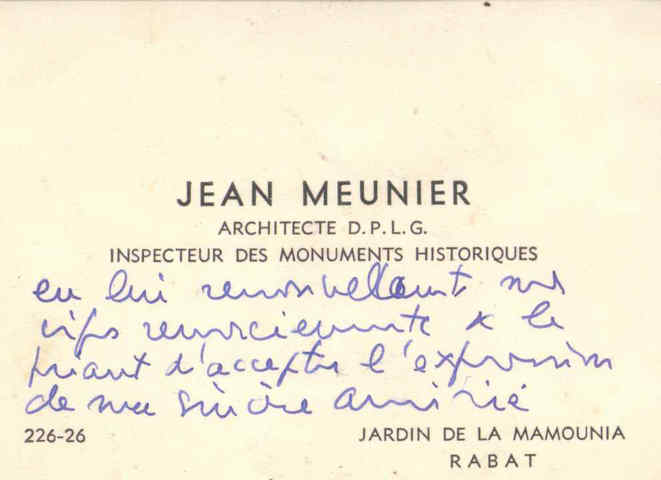 JEAN MEUNIER
ARCHITECTE D.P.L.G.
INSPECTEUR DES MONUMENTS HISTORIQUES
en lui renouvellant mes
vifs remerciements & le
priant d'accepter l'expression
de ma sincère amitié
226-26
JARDIN DE LA MAMOUNIA
RABAT